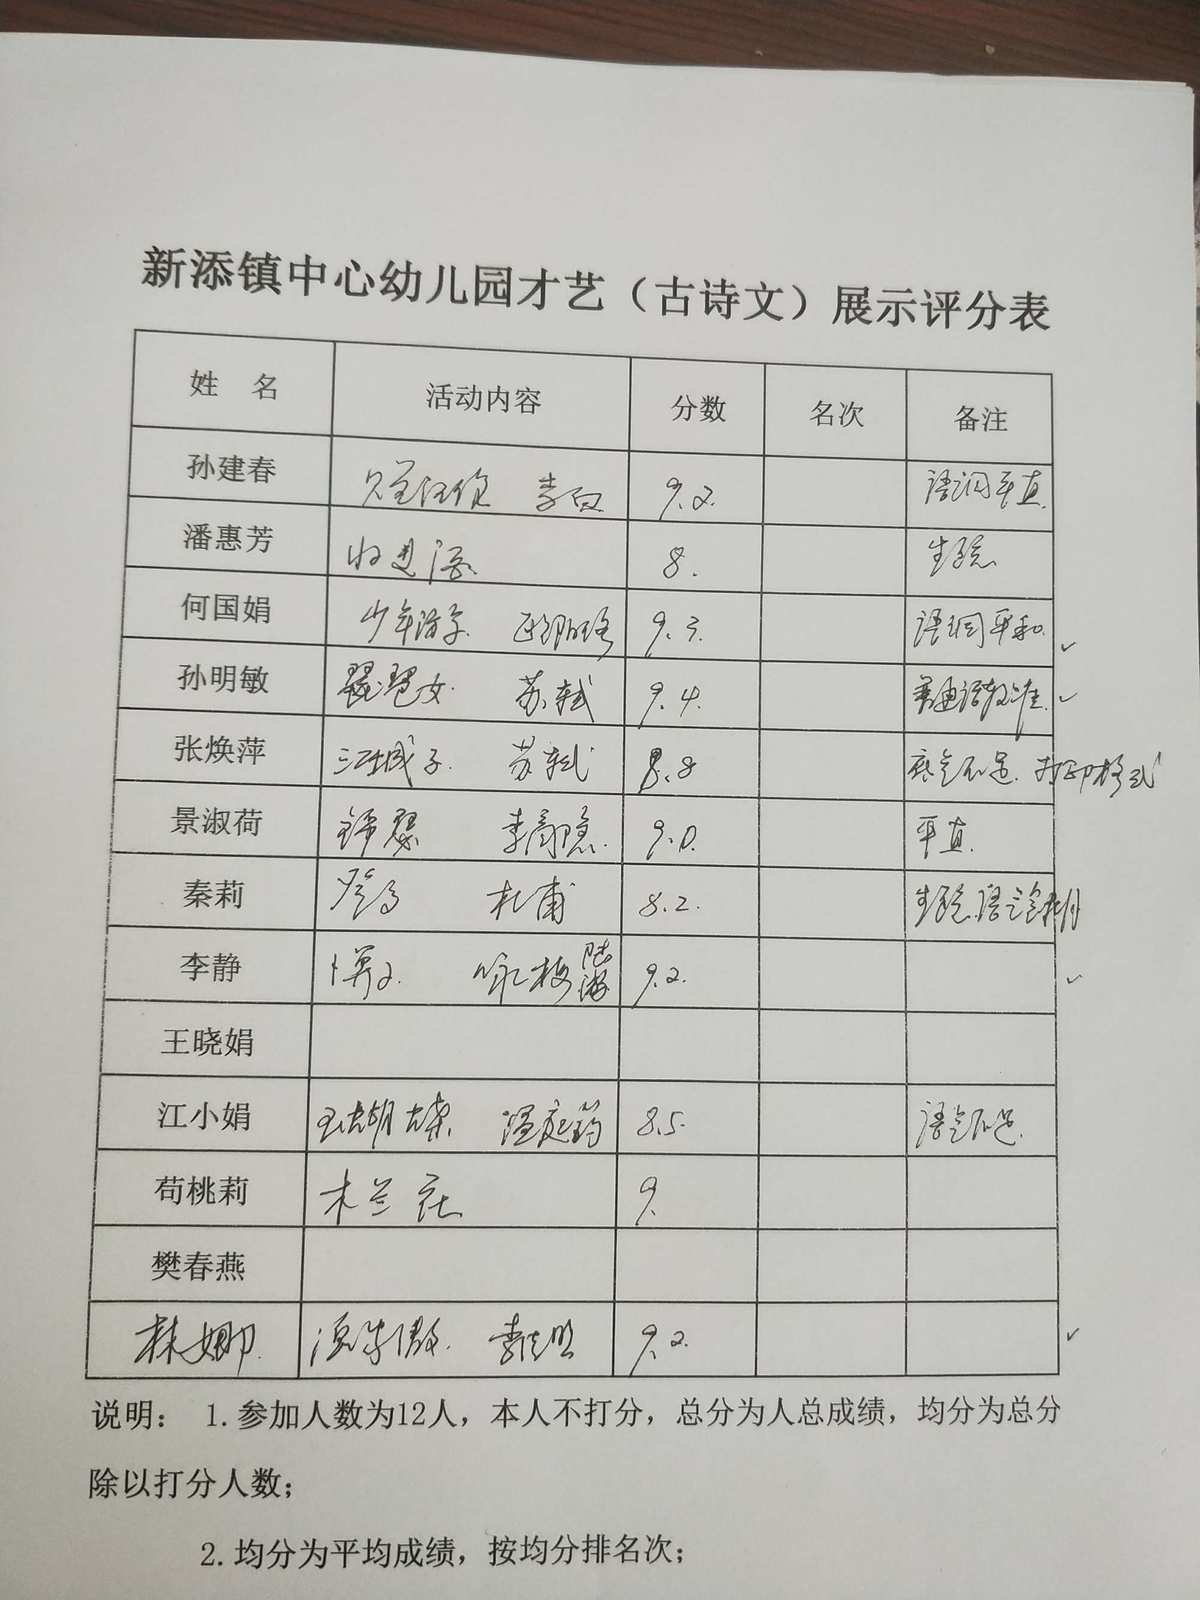 新添镇中心幼儿园才艺（古诗文）展示评分表
姓 名 活动内容 分数 名次 备注
孙建春 李白 9.2 语调平直
潘惠芳 将进酒 8. 生疏
何国娟 少年游 9.3 语调平和 ✓
孙明敏 琵琶女 苏轼 9.4 普通话较准 ✓
张焕萍 江城子 苏轼 8.8 底气不足 打印格式
景淑荷 锦瑟 李商隐 9.0 平直
秦莉 登高 杜甫 8.2 生疏
李静 卜算子 咏梅 陆游 9.2 ✓
王晓娟
江小娟 玉蝴蝶 温庭筠 8.5 语气不足
苟桃莉 木兰花 9.
樊春燕
林娜 渔家傲 李清照 9.2 ✓
说明： 1.参加人数为12人，本人不打分，总分为人总成绩，均分为总分
除以打分人数；
2.均分为平均成绩，按均分排名次；